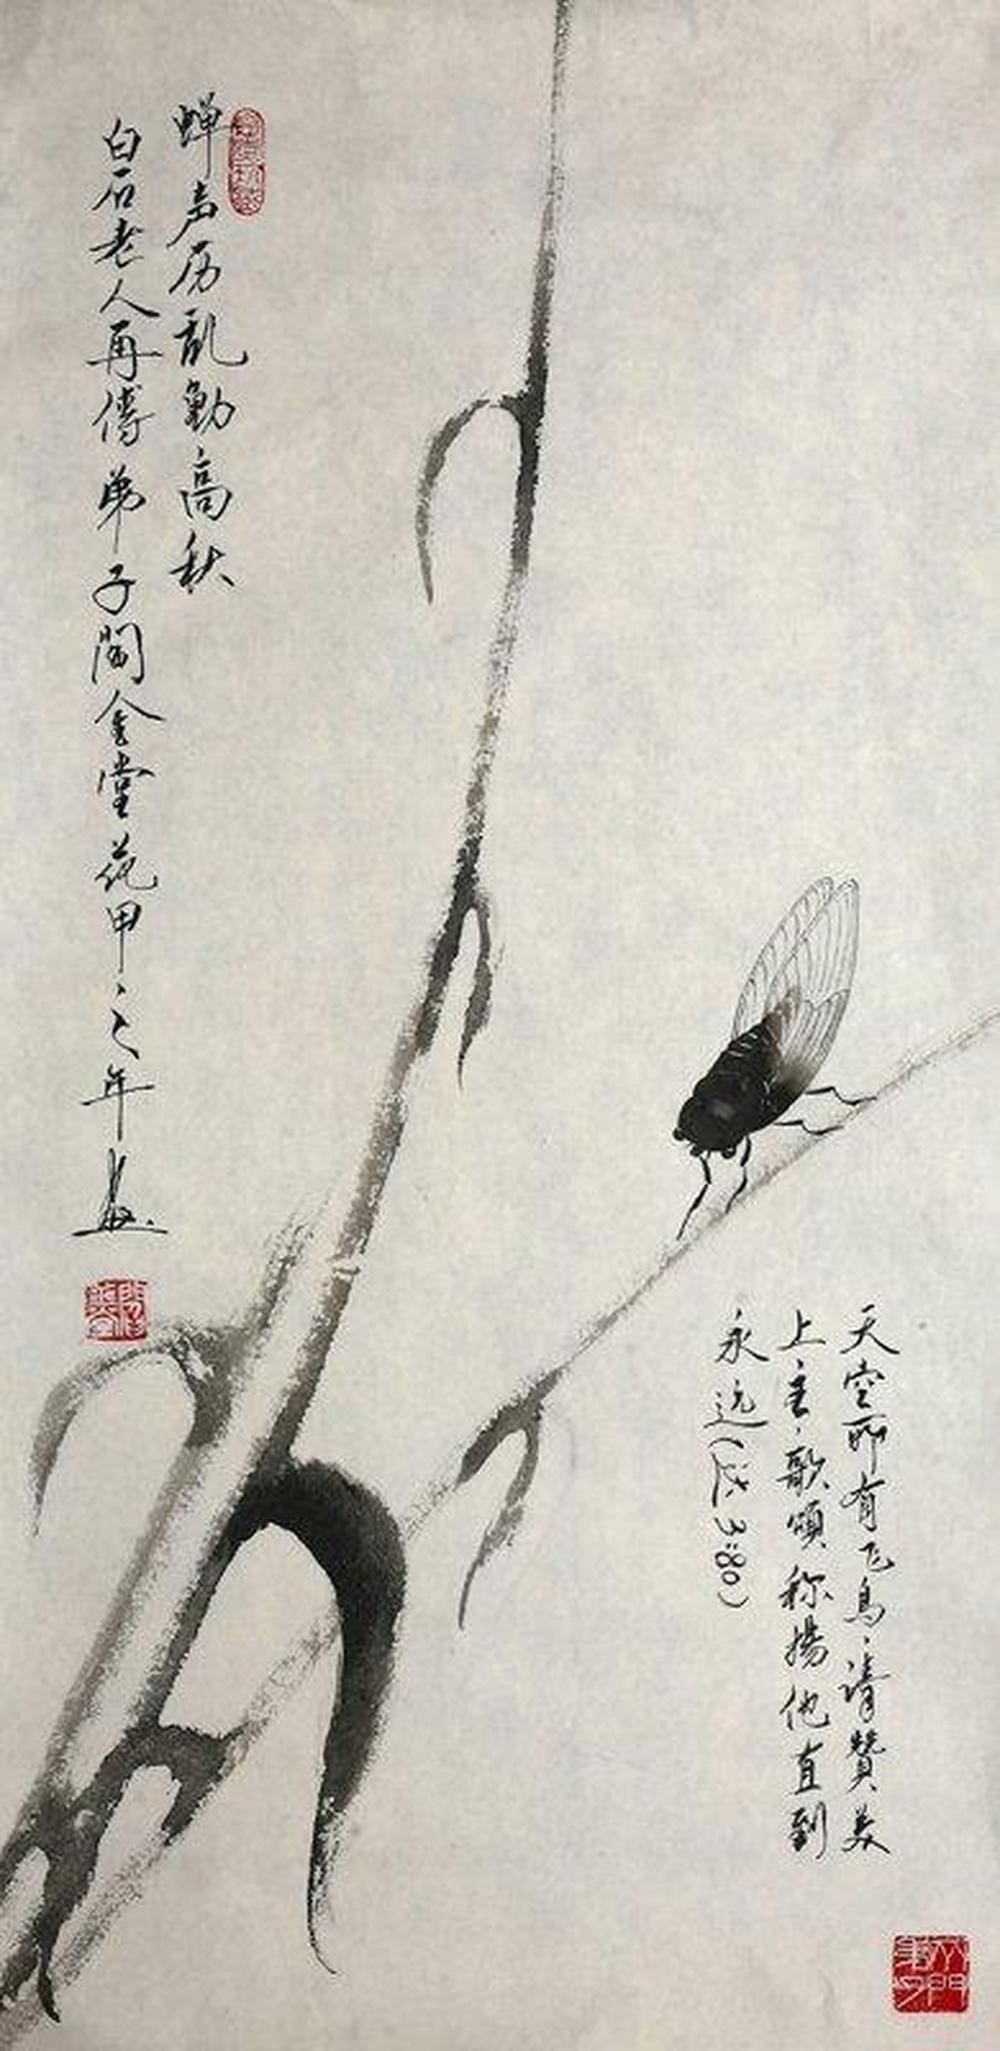 蝉声历乱動高秋
白石老人再傳弟子閻金堂花甲之年畫
天空所有飞鳥,请贊美
上主,歌頌称揚他直到
永远(达3:80)